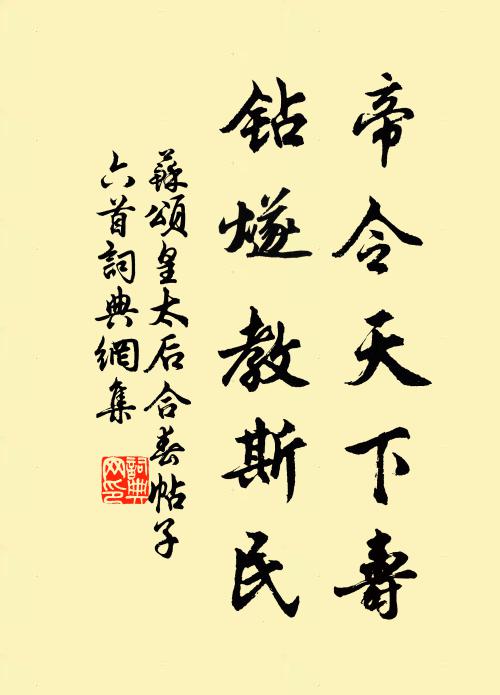 帝令天下壽
鉆燧教斯民
蘇頌皇太后合春帖子
六首詞典網集
詞典
网印